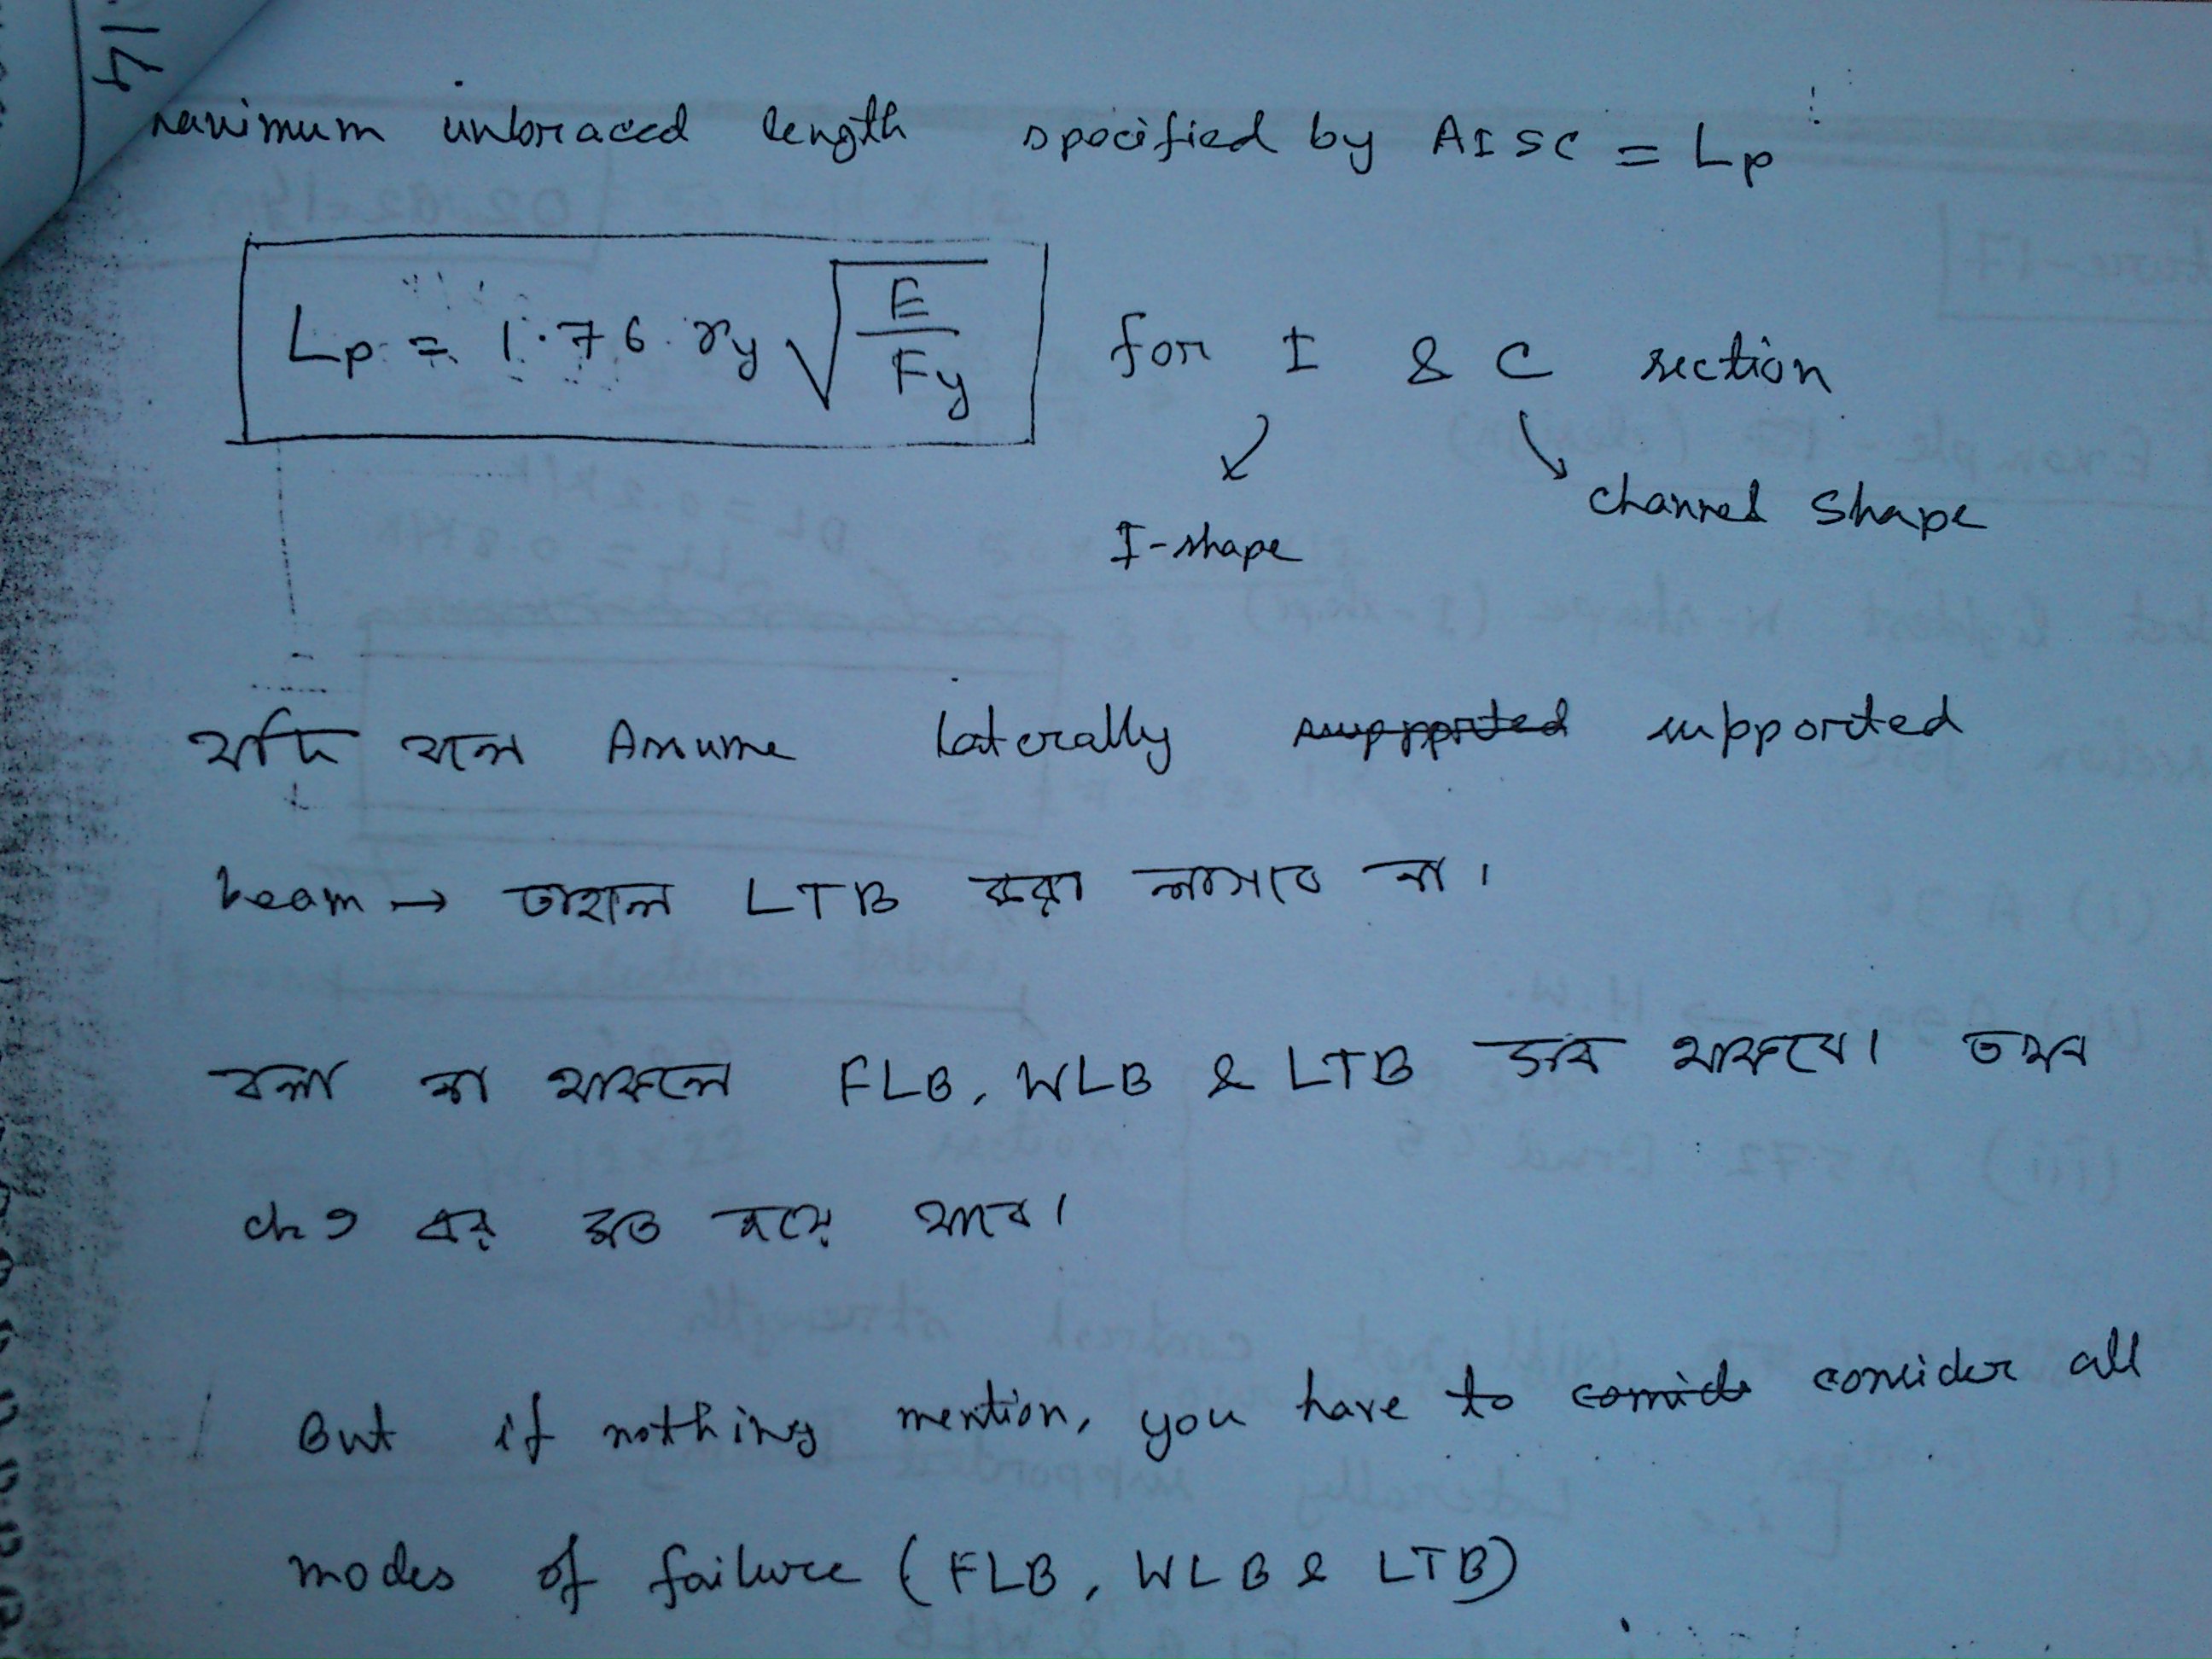 maximum unbraced length specified by AISC = Lp
Lp = 1.76 ry √(E/Fy) for I & C section
I-shape
channel shape
যদি বলে Assume laterally supported supported
beam → তাহলে LTB করা লাগবে না।
বলা না থাকলে FLB, WLB & LTB থাকবে। তখন
ch 9 এর মত হয়ে যাবে।
But if nothing mention, you have to conside consider all
modes of failure (FLB, WLB & LTB)